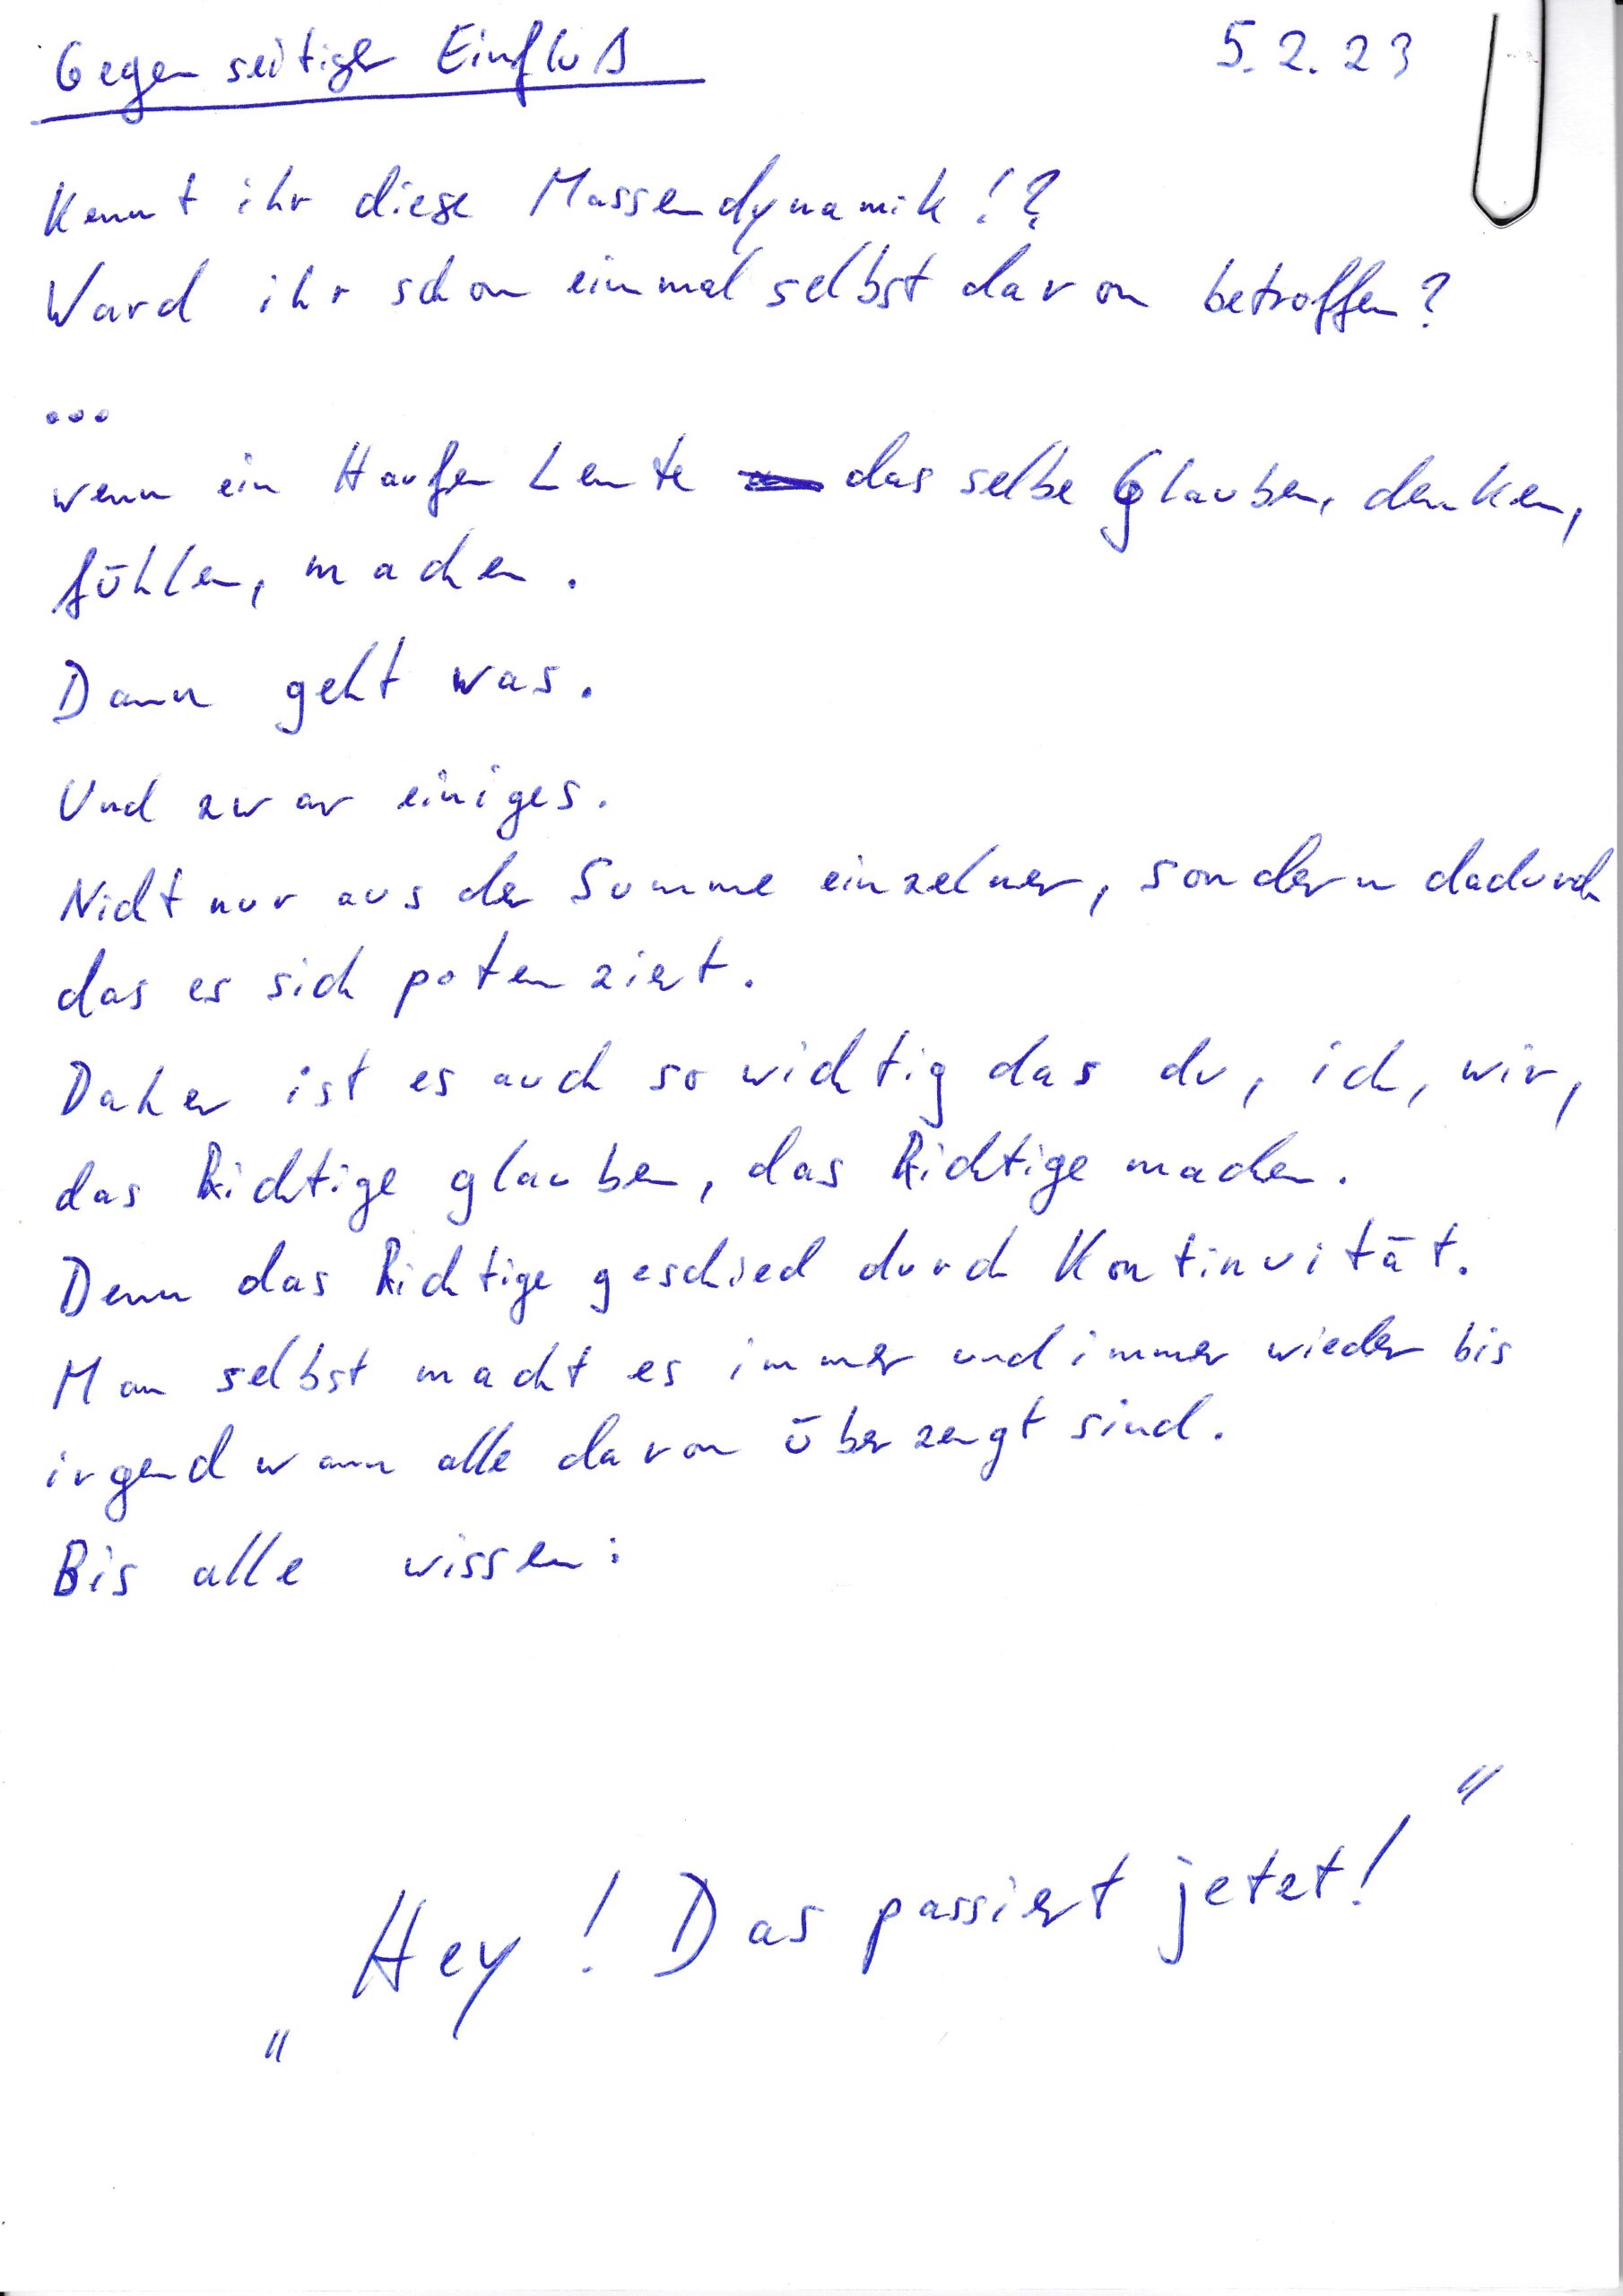 Gegenseitiger Einfluß 5.2.23
Kennt ihr diese Massendynamik!?
Ward ihr schon einmal selbst davon betroffen?
...
wenn ein Haufen Leute das selbe Glauben, denken,
fühlen, machen.
Dann geht was.
Und zwar einiges.
Nicht nur aus der Summe einzelner, sondern dadurch
das es sich potenziert.
Daher ist es auch so wichtig das du, ich, wir,
das Richtige glauben, das Richtige machen.
Denn das Richtige geschied durch Kontinuität.
Man selbst macht es immer und immer wieder bis
irgendwann alle davon überzeugt sind.
Bis alle wissen:
„Hey! Das passiert jetzt!"